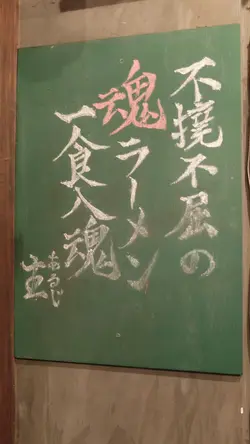 不撓不屈の
魂ラーメン
一食入魂
あるじ